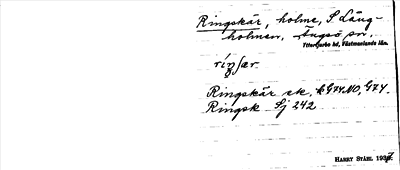 Ringskär, holme, S Lång-
holmen, Ängsö sn.
Yttertjurbo hd, Västmanlands län.
Ringskär ek. G74NO, G74.
Ringsk Sj 242
HARRY STÅHL 1937.